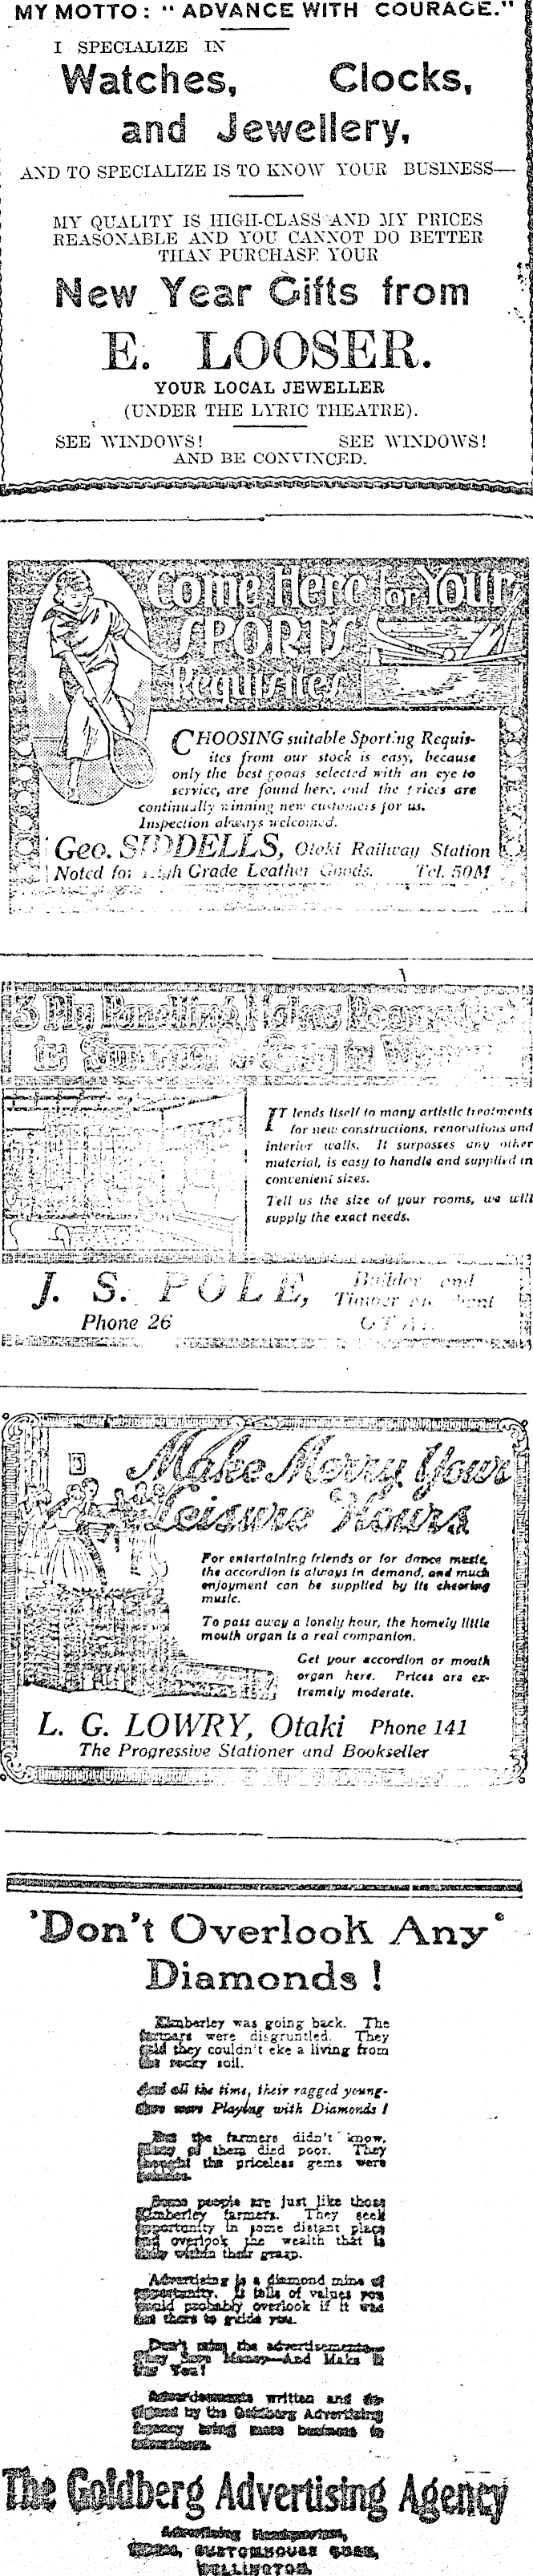 MY MOTTO: "ADVANCE WITH COURAGE."
I SPECIALIZE IN
Watches, Clocks,
and Jewellery,
AND TO SPECIALIZE IS TO KNOW YOUR BUSINESS—
MY QUALITY IS HIGH-CLASS AND MY PRICES
REASONABLE AND YOU CANNOT DO BETTER
THAN PURCHASE YOUR
New Year Gifts from
E. LOOSER.
YOUR LOCAL JEWELLER
(UNDER THE LYRIC THEATRE).
SEE WINDOWS! SEE WINDOWS!
AND BE CONVINCED.
Come Here for Your
SPORTS
Requisites
CHOOSING suitable Sporting Requis-
ites from our stock is easy, because
only the best goods selected with an eye to
service, are found here, and the prices are
continually winning new customers for us.
Inspection always welcomed.
Geo. SIDDELLS, Otaki Railway Station
Noted for High Grade Leather Goods. Tel. 50M
3 Ply Panelling Makes Rooms
in Summer
IT lends itself to many artistic treatments
for new constructions, renovations and
interior walls. It surpasses any other
material, is easy to handle and supplied in
convenient sizes.
Tell us the size of your rooms, we will
supply the exact needs.
J. S. POLE, Builder and
Timber
Phone 26
Make Merry Your
Leisure Hours
For entertaining friends or for dance music,
the accordion is always in demand, and much
enjoyment can be supplied by its cheering
music.
To pass away a lonely hour, the homely little
mouth organ is a real companion.
Get your accordion or mouth
organ here. Prices are ex-
tremely moderate.
L. G. LOWRY, Otaki Phone 141
The Progressive Stationer and Bookseller
'Don't Overlook Any'
Diamonds!
Kimberley was going back. The
farmers were disgruntled. They
said they couldn't eke a living from
the rocky soil.
And all the time, their ragged young-
sters were Playing with Diamonds!
But the farmers didn't know.
Many of them died poor. They
thought the priceless gems were
pebbles.
Some people are just like those
Kimberley farmers. They seek
opportunity in some distant place
and overlook the wealth that is
within their grasp.
Advertising is a diamond mine of
opportunity. It tells of values you
would probably overlook if it was
not there to guide you.
Don't miss the advertisements—
They Save Money—And Make it
for You!
Advertisements written and de-
signed by the Goldberg Advertising
Agency bring more business to
advertisers.
The Goldberg Advertising Agency
Advertising Headquarters,
CUSTOMHOUSE QUAY,
WELLINGTON.